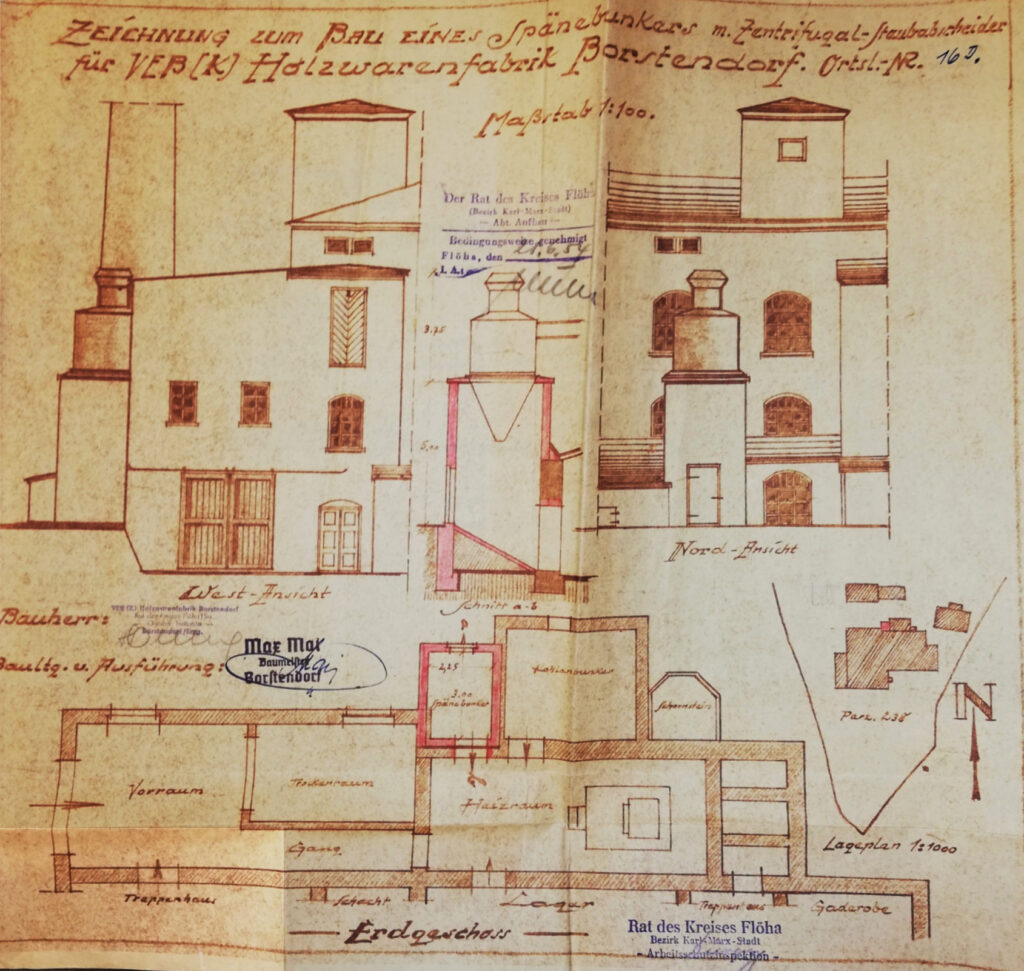 Zeichnung zum Bau eines Spänebunkers m. Zentrifugal-Staubabscheider
für VEB (K) Holzwarenfabrik Borstendorf. Ortsl.-Nr. 16 D.
Maßstab 1:100.
Der Rat des Kreises Flöha
(Bezirk Karl-Marx-Stadt)
— Abt. Aufbau —
Bedingungsweise genehmigt
Flöha, den 21.6.54
I. A.:
3.75
5,00
West-Ansicht
Schnitt a-b
Nord-Ansicht
Bauherr:
VEB (K) Holzwarenfabrik Borstendorf
Borstendorf
Baultg. u. Ausführung:
Max Mai
Baumeister
Borstendorf
a
2,25
3.00
Spänebunker
Kohlenbunker
Schornstein
Parz. 238
N
Vorraum
Trockenraum
Heizraum
Gang
Lageplan 1:1000
Treppenhaus
Schacht
Lager
Treppenhaus
Gaderobe
Erdgeschoss
Rat des Kreises Flöha
Bezirk Karl-Marx-Stadt
- Arbeitsschutzinspektion -